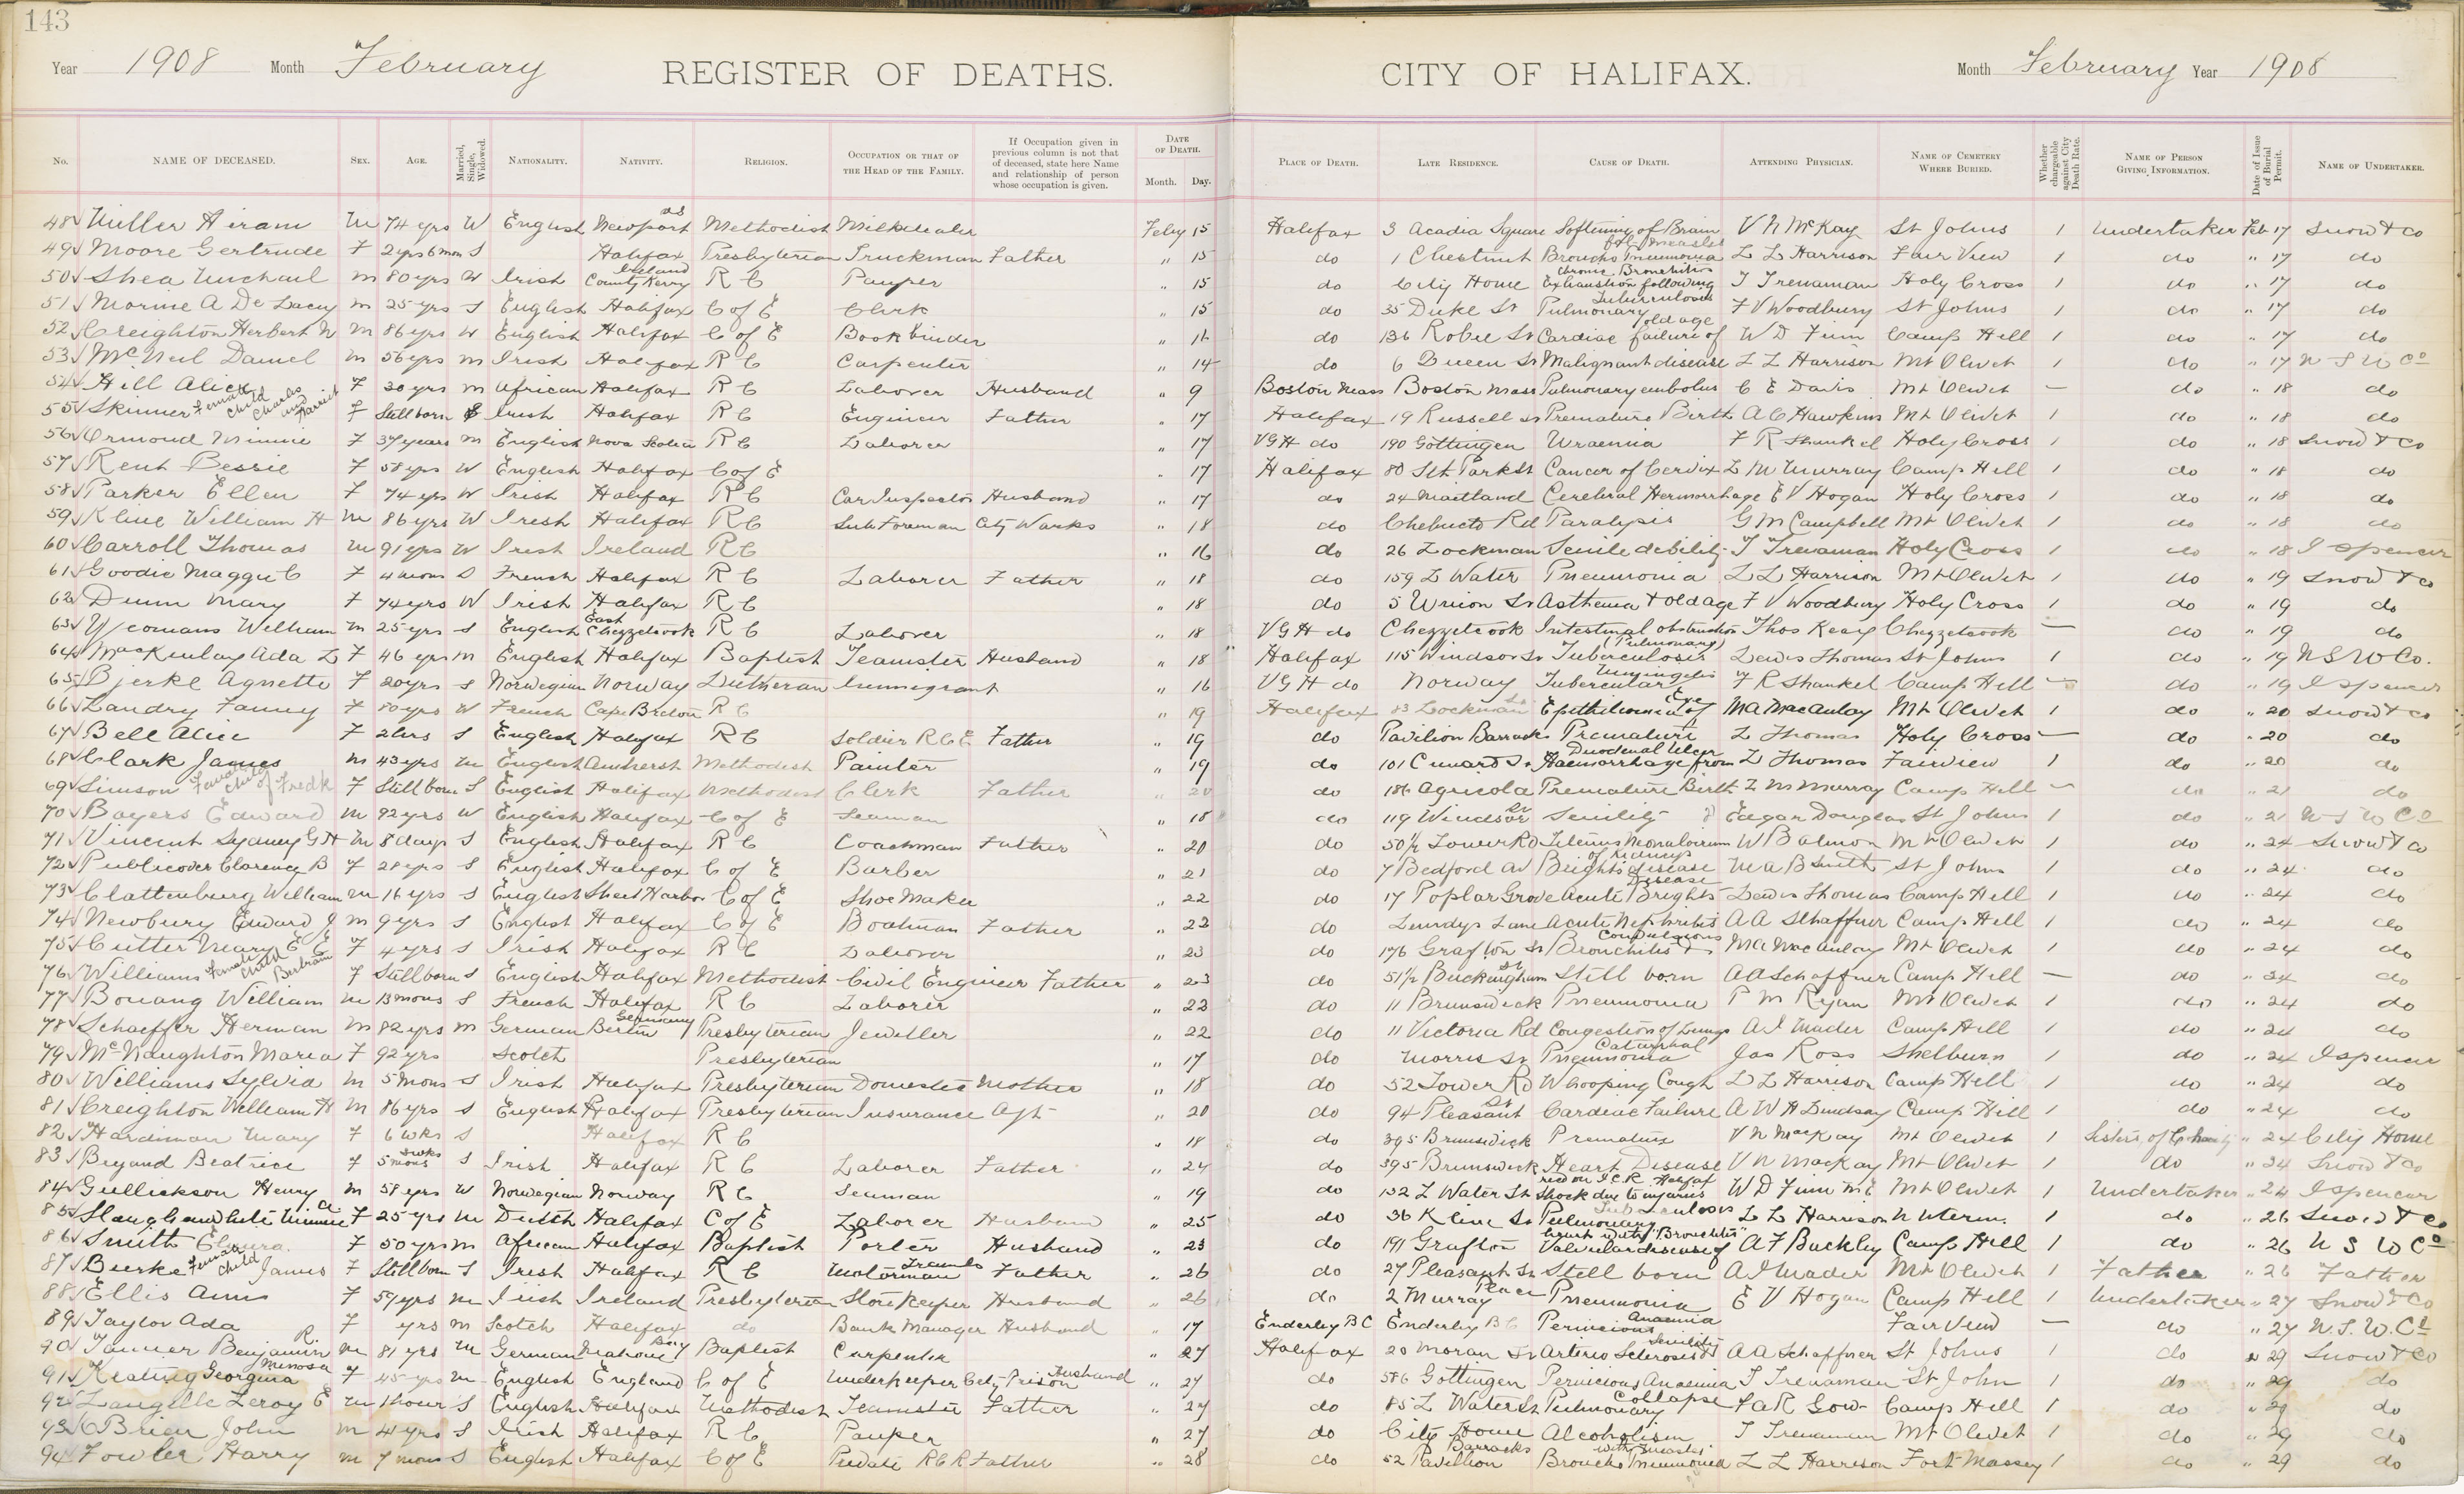 143
Year 1908 Month February REGISTER OF DEATHS. CITY OF HALIFAX. Month February Year 1908
No. NAME OF DECEASED. SEX. AGE. Married, Single, Widowed. NATIONALITY. NATIVITY. RELIGION. OCCUPATION OR THAT OF THE HEAD OF THE FAMILY. If Occupation given in previous column is not that of deceased, state here Name and relationship of person whose occupation is given. DATE OF DEATH. Month. Day. PLACE OF DEATH. LATE RESIDENCE. CAUSE OF DEATH. ATTENDING PHYSICIAN. NAME OF CEMETERY WHERE BURIED. Whether chargeable against City Death Rate. NAME OF PERSON GIVING INFORMATION. Date of Issue of Burial Permit. NAME OF UNDERTAKER.
48 Miller Hiram M 74 yrs W English Newport Methodist Milkdealer Feby 15 Halifax 3 Acadia Square Softening of Brain V N McKay St Johns 1 Undertaker Feb 17 Snow & Co
49 Moore Gertrude F 2 yrs 6 mon S Halifax Presbyterian Truckman Father " 15 do 1 Chestnut Broncho Pneumonia Measles L L Harrison Fair View 1 do " 17 do
50 Shea Michael M 80 yrs W Irish County Kerry Ireland R C Pauper " 15 do City Home Exhaustion following Chronic Bronchitis T Trenaman Holy Cross 1 do " 17 do
51 Morine A De Lacey M 25 yrs S English Halifax C of E Clerk " 15 do 35 Duke St Pulmonary Tuberculosis F V Woodbury St Johns 1 do " 17 do
52 Creighton Herbert N M 86 yrs W English Halifax C of E Book binder " 16 do 136 Robie St Cardiac failure of old age W D Finn Camp Hill 1 do " 17 do
53 McNeil Daniel M 56 yrs M Irish Halifax R C Carpenter " 14 do 6 Queen St Malignant disease L L Harrison Mt Olivet 1 do " 17 N S U Co
54 Hill Alice F 20 yrs M African Halifax R C Laborer Husband " 9 Boston Mass Boston Mass Pulmonary embolus C E Davis Mt Olivet — do " 18 do
55 Skinner Female child Charles and Harriet F Still born S Irish Halifax R C Engineer Father " 17 Halifax 19 Russell St Premature Birth A C Hawkins Mt Olivet 1 do " 18 do
56 Ormond Minnie F 37 years M English Nova Scotia R C Laborer " 17 V G H do 190 Gottingen Uraemia F R Shankel Holy Cross 1 do " 18 Snow & Co
57 Rent Bessie F 58 yrs W English Halifax C of E " 17 Halifax 80 Sth Park St Cancer of Cervix L M Murray Camp Hill 1 do " 18 do
58 Parker Ellen F 74 yrs W Irish Halifax R C Car Inspector Husband " 17 do 24 Maitland Cerebral Hermorrhage E V Hogan Holy Cross 1 do " 18 do
59 Kline William H M 86 yrs W Irish Halifax R C Sub Foreman City Works " 18 do Chebucto Rd Paralysis G M Campbell Mt Olivet 1 do " 18 do
60 Carroll Thomas M 91 yrs W Irish Ireland R C " 16 do 26 Lockman Senile debility T Trenaman Holy Cross 1 do " 18 I Spencer
61 Goodie Maggie C F 4 mons S French Halifax R C Laborer Father " 18 do 159 L Water Pneumonia L L Harrison Mt Olivet 1 do " 19 Snow & Co
62 Dunn Mary F 74 yrs W Irish Halifax R C " 18 do 5 Union St Asthema & old age F V Woodbury Holy Cross 1 do " 19 do
63 Yeomans William M 25 yrs S English East Chezzetcook R C Laborer " 18 V G H do Chezzetcook Intestinal obstruction Thos Keay Chezzetcook — do " 19 do
64 MacKinlay Ada L F 46 yrs M English Halifax Baptist Teamster Husband " 18 Halifax 115 Windsor St Tuberculosis (Pulmonary) Lewis Thomas St Johns 1 do " 19 N S U Co.
65 Bjerke Agnette F 20 yrs S Norwegian Norway Lutheran Immigrant " 16 V G H do Norway Tubercular Meningitis F R Shankel Camp Hill — do " 19 I Spencer
66 Landry Fanny F 80 yrs W French Cape Breton R C " 19 Halifax 83 Lockman St Epithelioma of Eye M A MacAulay Mt Olivet 1 do " 20 Snow & Co
67 Bell Alice F 2 hrs S English Halifax R C Soldier R C E Father " 19 do Pavilion Barracks Premature L Thomas Holy Cross — do " 20 do
68 Clark James M 43 yrs M English Amherst Methodist Painter " 19 do 101 Cunard St Haemorrhage from Duodenal Ulcer L Thomas Fairview 1 do " 20 do
69 Simson Female child of Fredk F Still born S English Halifax Methodist Clerk Father " 20 do 186 Agricola Premature Birth L M Murray Camp Hill — do " 21 do
70 Bayers Edward M 92 yrs W English Halifax C of E Seaman " 18 do 119 Windsor St Senility Edgar Douglas St Johns 1 do " 21 N S U Co
71 Vincent Sydney G H M 8 days S English Halifax R C Coachman Father " 20 do 50½ Tower Rd Icterus Neonatorum W B Almon Mt Olivet 1 do " 24 Snow & Co
72 Publicover Clarence B F 28 yrs S English Halifax C of E Barber " 21 do 7 Bedford Av Brights disease of Kidneys M A B Smith St Johns 1 do " 24 do
73 Clattenburg William M 16 yrs S English Sheet Harbor C of E Shoe Maker " 22 do 17 Poplar Grove Acute Brights Disease Lewis Thomas Camp Hill 1 do " 24 do
74 Newbury Edward J M 9 yrs S English Halifax C of E Boatman Father " 22 do Lundys Lane Acute Nephritis A A Schaffner Camp Hill 1 do " 24 do
75 Cutter Mary E E F 4 yrs S Irish Halifax R C Laborer " 23 do 176 Grafton St Bronchitis & Convulsions M A MacAulay Mt Olivet 1 do " 24 do
76 Williams Female child Bertram F Still born S English Halifax Methodist Civil Engineer Father " 23 do 51½ Buckingham St Still born A A Schaffner Camp Hill — do " 24 do
77 Bonang William M 13 mons S French Halifax R C Laborer " 22 do 11 Brunswick Pneumonia P M Ryan Mt Olivet 1 do " 24 do
78 Schaeffer Herman M 82 yrs M German Berlin Germany Presbyterian Jeweller " 22 do 11 Victoria Rd Congestion of Lungs A I Mader Camp Hill 1 do " 24 do
79 McNaughton Maria F 92 yrs Scotch Presbyterian " 17 do Morris St Pneumonia Catarrhal Jas Ross Shelburn 1 do " 24 I Spencer
80 Williams Sylvia M 5 mons S Irish Halifax Presbyterian Domestic Mother " 18 do 52 Tower Rd Whooping Cough L L Harrison Camp Hill 1 do " 24 do
81 Creighton William H M 86 yrs S English Halifax Presbyterian Insurance Agt " 20 do 94 Pleasant St Cardiac Failure A W H Lindsay Camp Hill 1 do " 24 do
82 Hardiman Mary F 6 wks S Halifax R C " 18 do 395 Brunswick Premature V N MacKay Mt Olivet 1 Sisters of Charity " 24 City Home
83 Bryand Beatrice F 5 mons wks S Irish Halifax R C Laborer Father " 24 do 395 Brunswick Heart Disease V N MacKay Mt Olivet 1 do " 24 Snow & Co
84 Gullickson Henry M 58 yrs W Norwegian Norway R C Seaman " 19 do 132 L Water St Shock due to injuries on I.C.R. Halifax W D Finn M E Mt Olivet 1 Undertaker " 24 I Spencer
85 Slaughenwhite Minnie A F 25 yrs M Dutch Halifax C of E Laborer Husband " 25 do 36 Kline St Pulmonary Tuberculosis L L Harrison 1 do " 26 Snow & Co
86 Smith F 50 yrs M African Halifax Baptist Porter Husband " 23 do 191 Grafton Valvular disease of heart with Bronchitis A F Buckley Camp Hill 1 do " 26 N S U Co
87 Burke Female child James F Still born S Irish Halifax R C Motorman Tram Father " 26 do 27 Pleasant St Still born A I Mader Mt Olivet 1 Father " 26 Father
88 Ellis Ann F 59 yrs M Irish Ireland Presbyterian Store Keeper Husband " 26 do 2 Murray Place Pneumonia E V Hogan Camp Hill 1 Undertaker " 27 Snow & Co
89 Taylor Ada F yrs M Scotch Halifax do Bank Manager Husband " 17 Enderby B C Enderby B C Pernicious Anaemia Fair View — do " 27 N. S. U. Co
90 Tanner Benjamin R M 81 yrs M German Mahone Bay Baptist Carpenter " 27 Halifax 20 Moran St Arterio Sclerosis & Senility A A Schaffner St Johns 1 do " 29 Snow & Co
91 Keating Georgina Mimosa F 45 yrs M English England C of E Underkeeper City Prison Husband " 27 do 586 Gottingen Pernicious Anaemia T Trenaman St John 1 do " 29 do
92 Langille Leroy E M 1 hour S English Halifax Methodist Teamster Father " 27 do 85 L Water St Pulmonary Collapse F A R Gow Camp Hill 1 do " 29 do
93 O'Brien John M 41 yrs S Irish Halifax R C Pauper " 27 do City Home Alcoholism T Trenaman Mt Olivet 1 do " 29 do
94 Fowler Harry M 7 mons S English Halifax C of E Private R C R Father " 28 do 52 Pavillion Barracks Broncho Pneumonia with Measles L L Harrison Fort Massey 1 do " 29 do